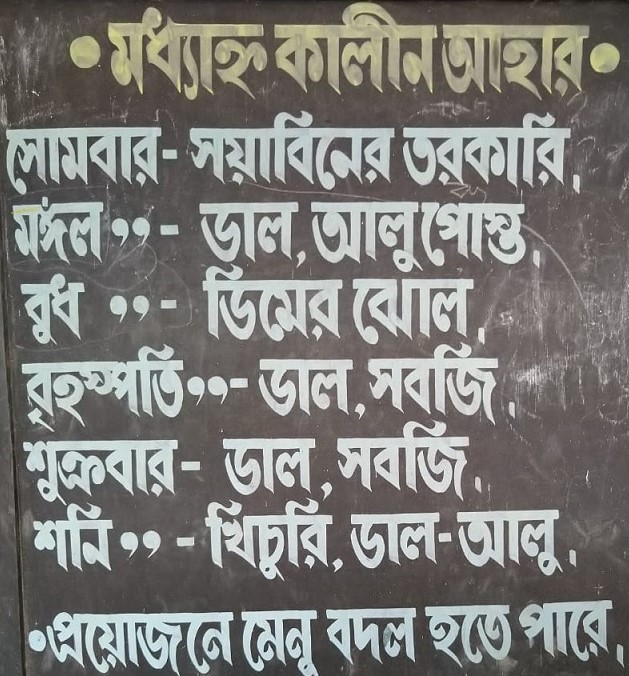 • মধ্যাহ্ন কালীন আহার •
সোমবার- সয়াবিনের তরকারি,
মঙ্গল ,,- ডাল, আলু পোস্ত,
বুধ ,,- ডিমের ঝোল,
বৃহস্পতি,,- ডাল, সবজি,
শুক্রবার- ডাল, সবজি,
শনি ,,- খিচুরি, ডাল-আলু,
•প্রয়োজনে মেনু বদল হতে পারে,